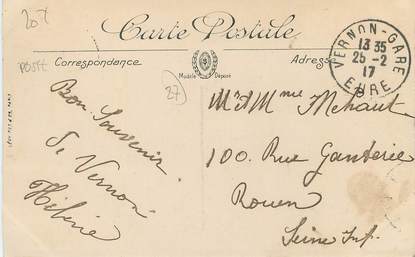 207
Carte Postale
POSTE
Correspondance
Modèle Déposé
Adresse
VERNON-GARE
13 35
25-2
17
EURE
27
Bon Souvenir
de Vernon
Hélène
Mr & Mme Mehaut
100. Rue Ganterie
Rouen
Seine Inf.